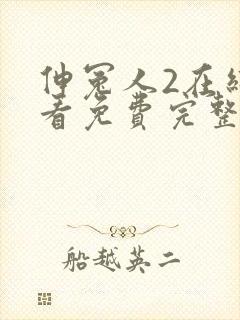 伸冤人2在线
看免费完整
船越英二